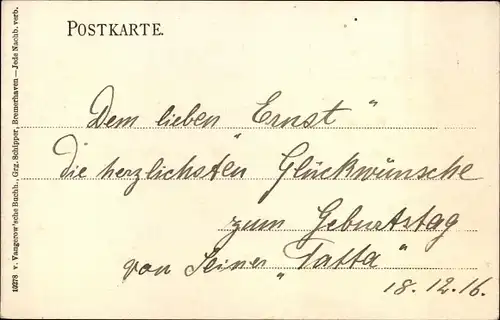 POSTKARTE.
Dem lieben „Ernst“
die herzlichsten Glückwünsche
zum Geburtstag
von Seiner „Tatta“
18.12.16.
19278 v. Vangerow'sche Buchh., Grz. Schipper, Bremerhaven—Jede Nachb. verb.